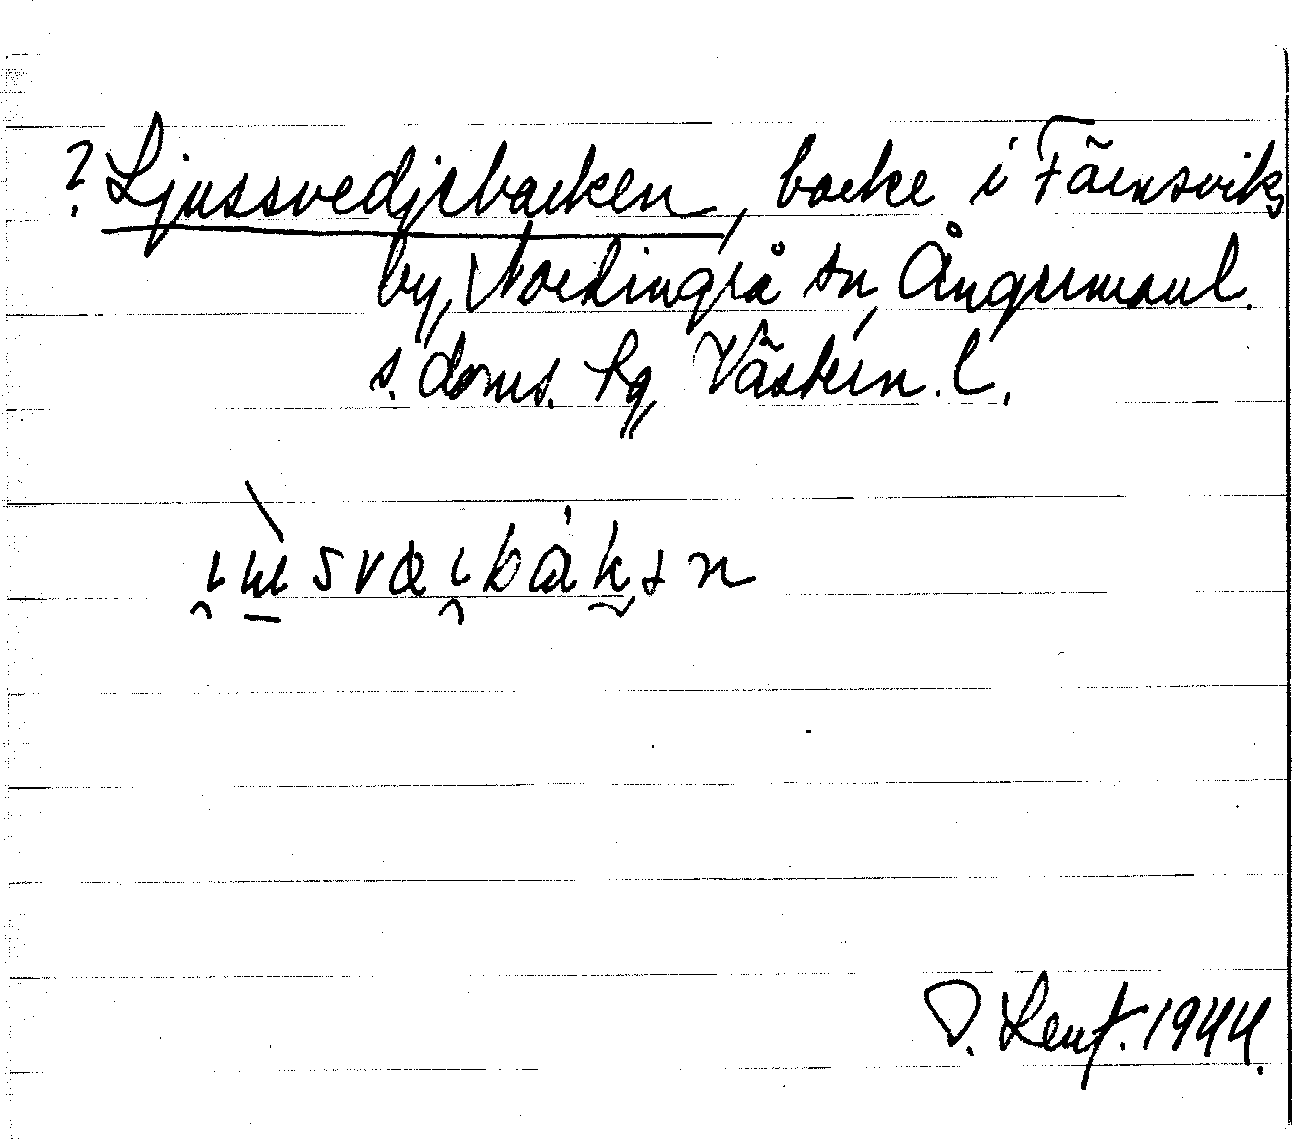 ? Ljussvedjebacken, backe i Färnsviks
by, Nordingrå sn, Ångermanl.
s. doms. hg, Västern. l.
D. Lenf. 1944.